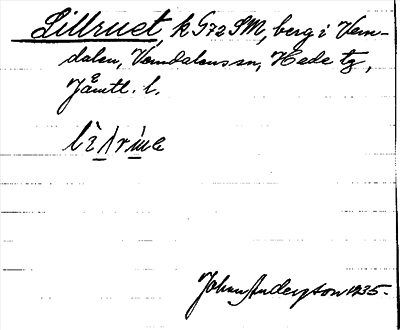 Lillruet, k G72SM, berg i Vem-
dalen, Vemdalens sn, Hede tg,
Jämtl. l.
Johan Anderzson 1935.